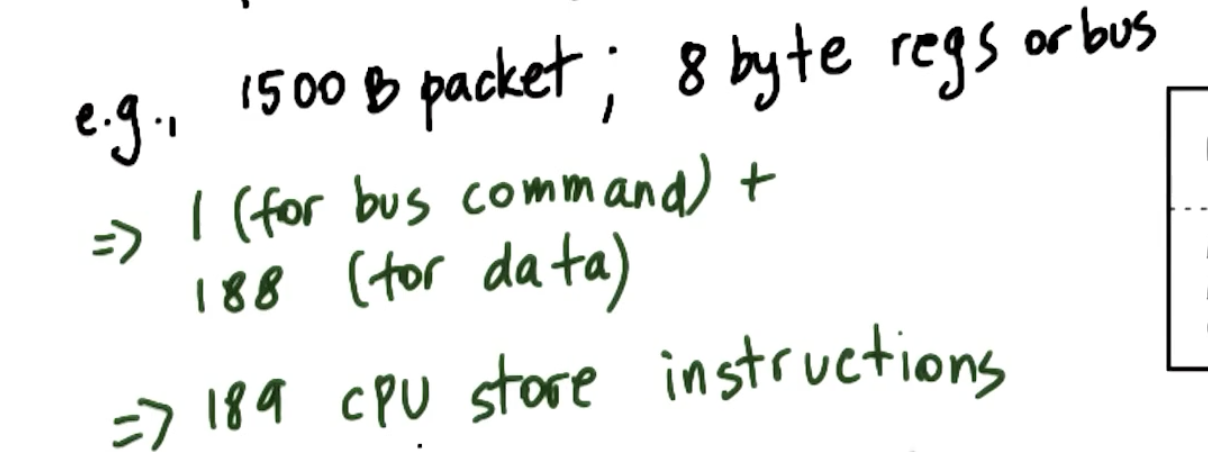 e.g., 1500 B packet; 8 byte regs or bus
=> 1 (for bus command) +
188 (for data)
=> 189 CPU store instructions